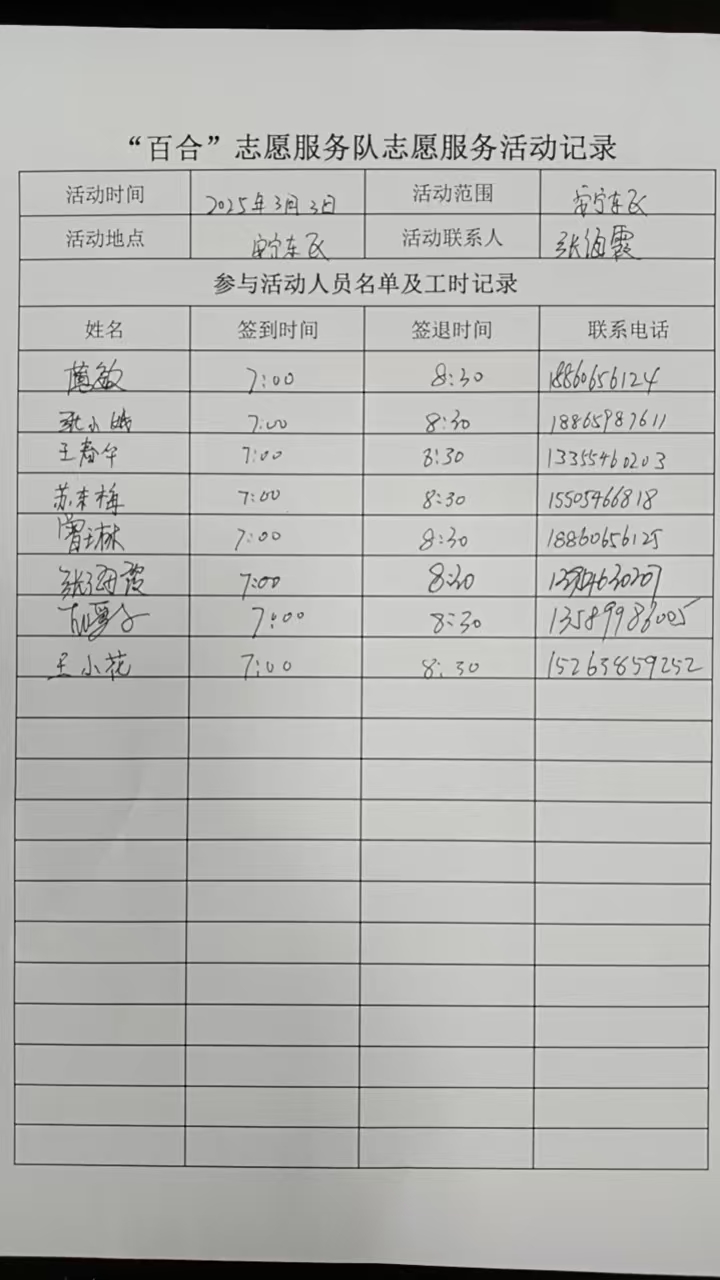 “百合”志愿服务队志愿服务活动记录
活动时间 2025年3月3日 活动范围 安宁东区
活动地点 安宁东区 活动联系人 张海霞
参与活动人员名单及工时记录
姓名 签到时间 签退时间 联系电话
敏 7:00 8:30 18860656124
张小 7:00 8:30 18865987611
王春华 7:00 8:30 13355460203
苏来梅 7:00 8:30 15505466818
曾林 7:00 8:30 18860656125
张海霞 7:00 8:30
7:00 8:30 13589986005
王小花 7:00 8:30 15263859252